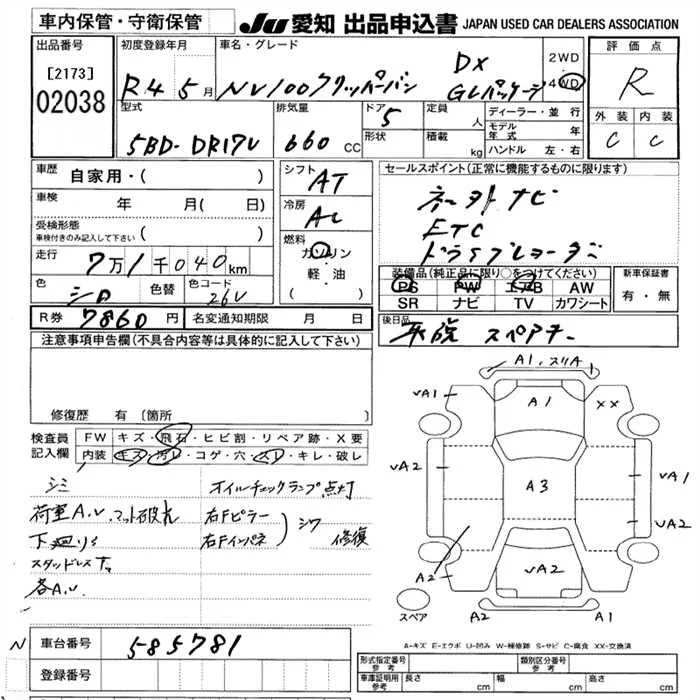 車内保管・守衛保管
JU 愛知 出品申込書 JAPAN USED CAR DEALERS ASSOCIATION
出品番号
[2173]
02038
初度登録年月
R4 5月
車名・グレード
NV100クリッパーバン DX GLパッケージ
2WD
4WD
評価点
R
外装 内装
C C
型式
5BD-DR17V
排気量
660 CC
ドア 5
形状
定員 人
積載 kg
ディーラー・並行
モデル年式 年
ハンドル 左・右
車歴
自家用・( )
車検 年 月( 日)
受検形態
車検付きのみ記入して下さい ( )
走行
7万1千040km
色 シロ
色替
色コード 26U
シフト AT
冷房 AC
燃料
ガソリン
軽・油
( )
セールスポイント(正常に機能するものに限り)
ナビ
ETC
ドライブレコーダー
装備品(純正品に限り○をつけてください)
PS PW エアB AW
SR ナビ TV カワシート
新車保証書
有・無
R券 7860円
名変通知期限 月 日
後日品
取説 スペアキー
注意事項申告欄(不具合内容等は具体的に記入して下さい)
修復歴 有〔箇所 〕
検査員記入欄
FW キズ・飛石・ヒビ割・リペア跡・X要
内装 キズ・汚レ・コゲ・穴・スレ・キレ・破レ
シミ
荷室A.U マット破れ
下廻りS
スタッドレスT
各A.U
オイルチェックランプ点灯
右Fピラー
右Fインパネ
シワ 修復
A1,スリA
UA1
A1
XX
UA2
A3
UA1
UA2
A2
UA2
スペア
A2
A1
A-キズ E-エクボ U-凹み W-補修跡 S-サビ C-腐食 XX-交換済
N
車台番号 585781
登録番号
形式指定番号 参考
類別区分番号 参考
車庫証明用 参考 長さ cm 幅 cm 高さ cm